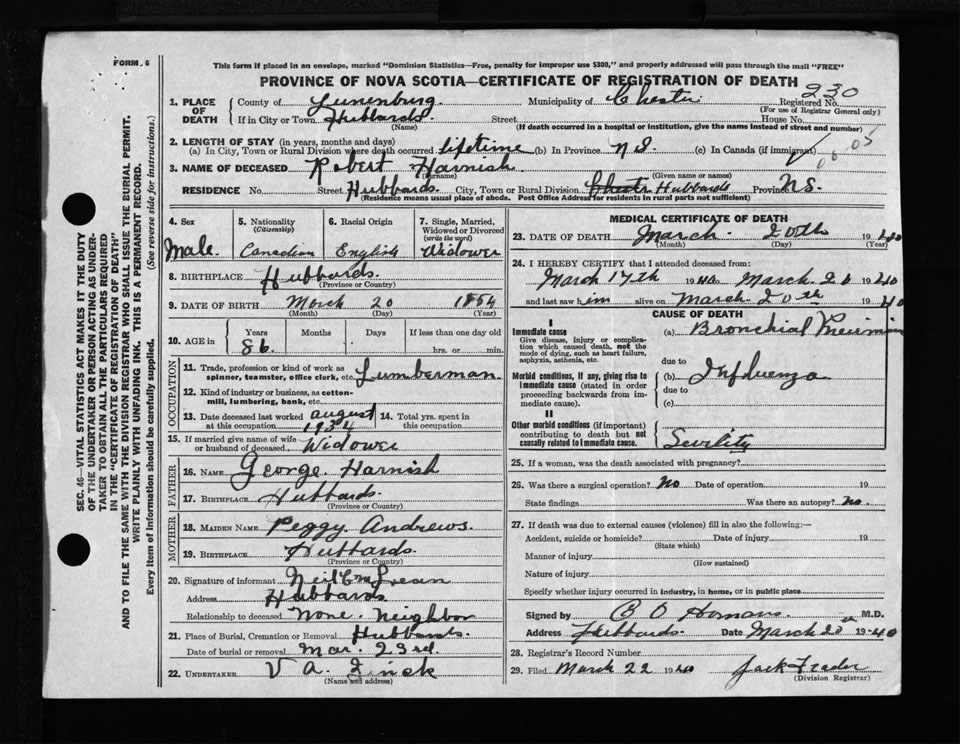 FORM. 6
This form if placed in an envelope, marked "Dominion Statistics—Free, penalty for improper use $300," and properly addressed will pass through the mail "FREE"
PROVINCE OF NOVA SCOTIA—CERTIFICATE OF REGISTRATION OF DEATH
230
1. PLACE OF DEATH County of Lunenburg. Municipality of Chester Registered No.
(For use of Registrar General only)
If in City or Town Hubbards Street House No.
(Name) (If death occurred in a hospital or institution, give the name instead of street and number)
2. LENGTH OF STAY (in years, months and days)
(a) In City, Town or Rural Division where death occurred lifetime (b) In Province N S. (c) In Canada (if immigrant)
3. NAME OF DECEASED Robert Harnish
(Surname) (Given name or names)
RESIDENCE No. Street Hubbards. City, Town or Rural Division Chester Hubbards Province N S.
(Residence means usual place of abode. Post Office Address for residents in rural parts not sufficient)
4. Sex 5. Nationality 6. Racial Origin 7. Single, Married, Widowed or Divorced
(Citizenship) (write the word)
Male. Canadian English Widower
8. BIRTHPLACE Hubbards.
(Province or Country)
9. DATE OF BIRTH March 20 1854
(Month) (Day) (Year)
10. AGE in Years Months Days If less than one day old
86. hrs. or min.
OCCUPATION
11. Trade, profession or kind of work as spinner, teamster, office clerk, etc. Lumberman.
12. Kind of industry or business, as cotton-mill, lumbering, bank, etc.
13. Date deceased last worked at this occupation august 1934 14. Total yrs. spent in this occupation
15. If married give name of wife or husband of deceased Widower
FATHER
16. NAME George. Harnish
17. BIRTHPLACE Hubbards.
(Province or Country)
MOTHER
18. MAIDEN NAME Peggy Andrews.
19. BIRTHPLACE Hubbards.
(Province or Country)
20. Signature of informant Neil C McLean
Address Hubbards
Relationship to deceased None. Neighbor
21. Place of Burial, Cremation or Removal Hubbards.
Date of burial or removal Mar. 23rd.
22. UNDERTAKER V A. Zinck
(Name and address)
MEDICAL CERTIFICATE OF DEATH
23. DATE OF DEATH March. 20th 1940
(Month) (Day) (Year)
24. I HEREBY CERTIFY that I attended deceased from:
March 17th 1940 March 20 1940
and last saw him alive on March 20th 1940
CAUSE OF DEATH
I
Immediate cause (a) Bronchial
Give disease, injury or complication which caused death, not the mode of dying, such as heart failure, asphyxia, asthenia, etc.
due to
Morbid conditions, if any, giving rise to immediate cause (stated in order proceeding backwards from immediate cause).
(b) Influenza
due to
(c)
II
Other morbid conditions (if important) contributing to death but not causally related to immediate cause.
Senility
25. If a woman, was the death associated with pregnancy?
26. Was there a surgical operation? No Date of operation 19
State findings Was there an autopsy? No.
27. If death was due to external causes (violence) fill in also the following:—
Accident, suicide or homicide? Date of injury 19
(State which)
Manner of injury
(How sustained)
Nature of injury
Specify whether injury occurred in industry, in home, or in public place
Signed by C O Homans M.D.
Address Hubbards. Date March 20 1940
28. Registrar's Record Number
29. Filed March 22 1940 Jack Frader
(Division Registrar)
SEC. 46—VITAL STATISTICS ACT MAKES IT THE DUTY
OF THE UNDERTAKER OR PERSON ACTING AS UNDER-
TAKER TO OBTAIN ALL THE PARTICULARS REQUIRED
IN THE "CERTIFICATE OF REGISTRATION OF DEATH"
AND TO FILE THE SAME WITH THE DIVISION REGISTRAR WHO SHALL ISSUE THE BURIAL PERMIT.
WRITE PLAINLY WITH UNFADING INK. THIS IS A PERMANENT RECORD.
Every item of information should be carefully supplied. (See reverse side for instructions.)